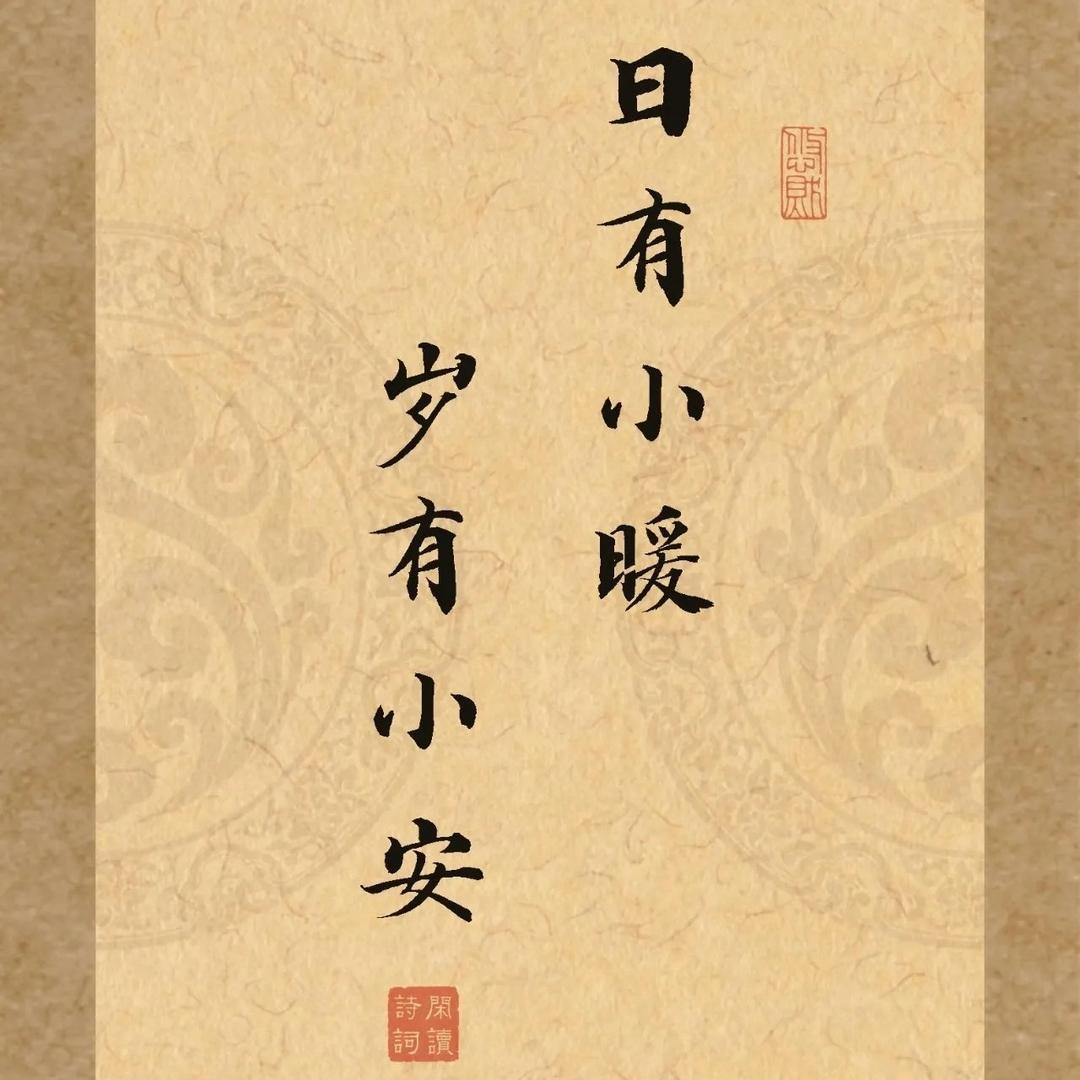 日有小暖
岁有小安
閑讀
詩詞